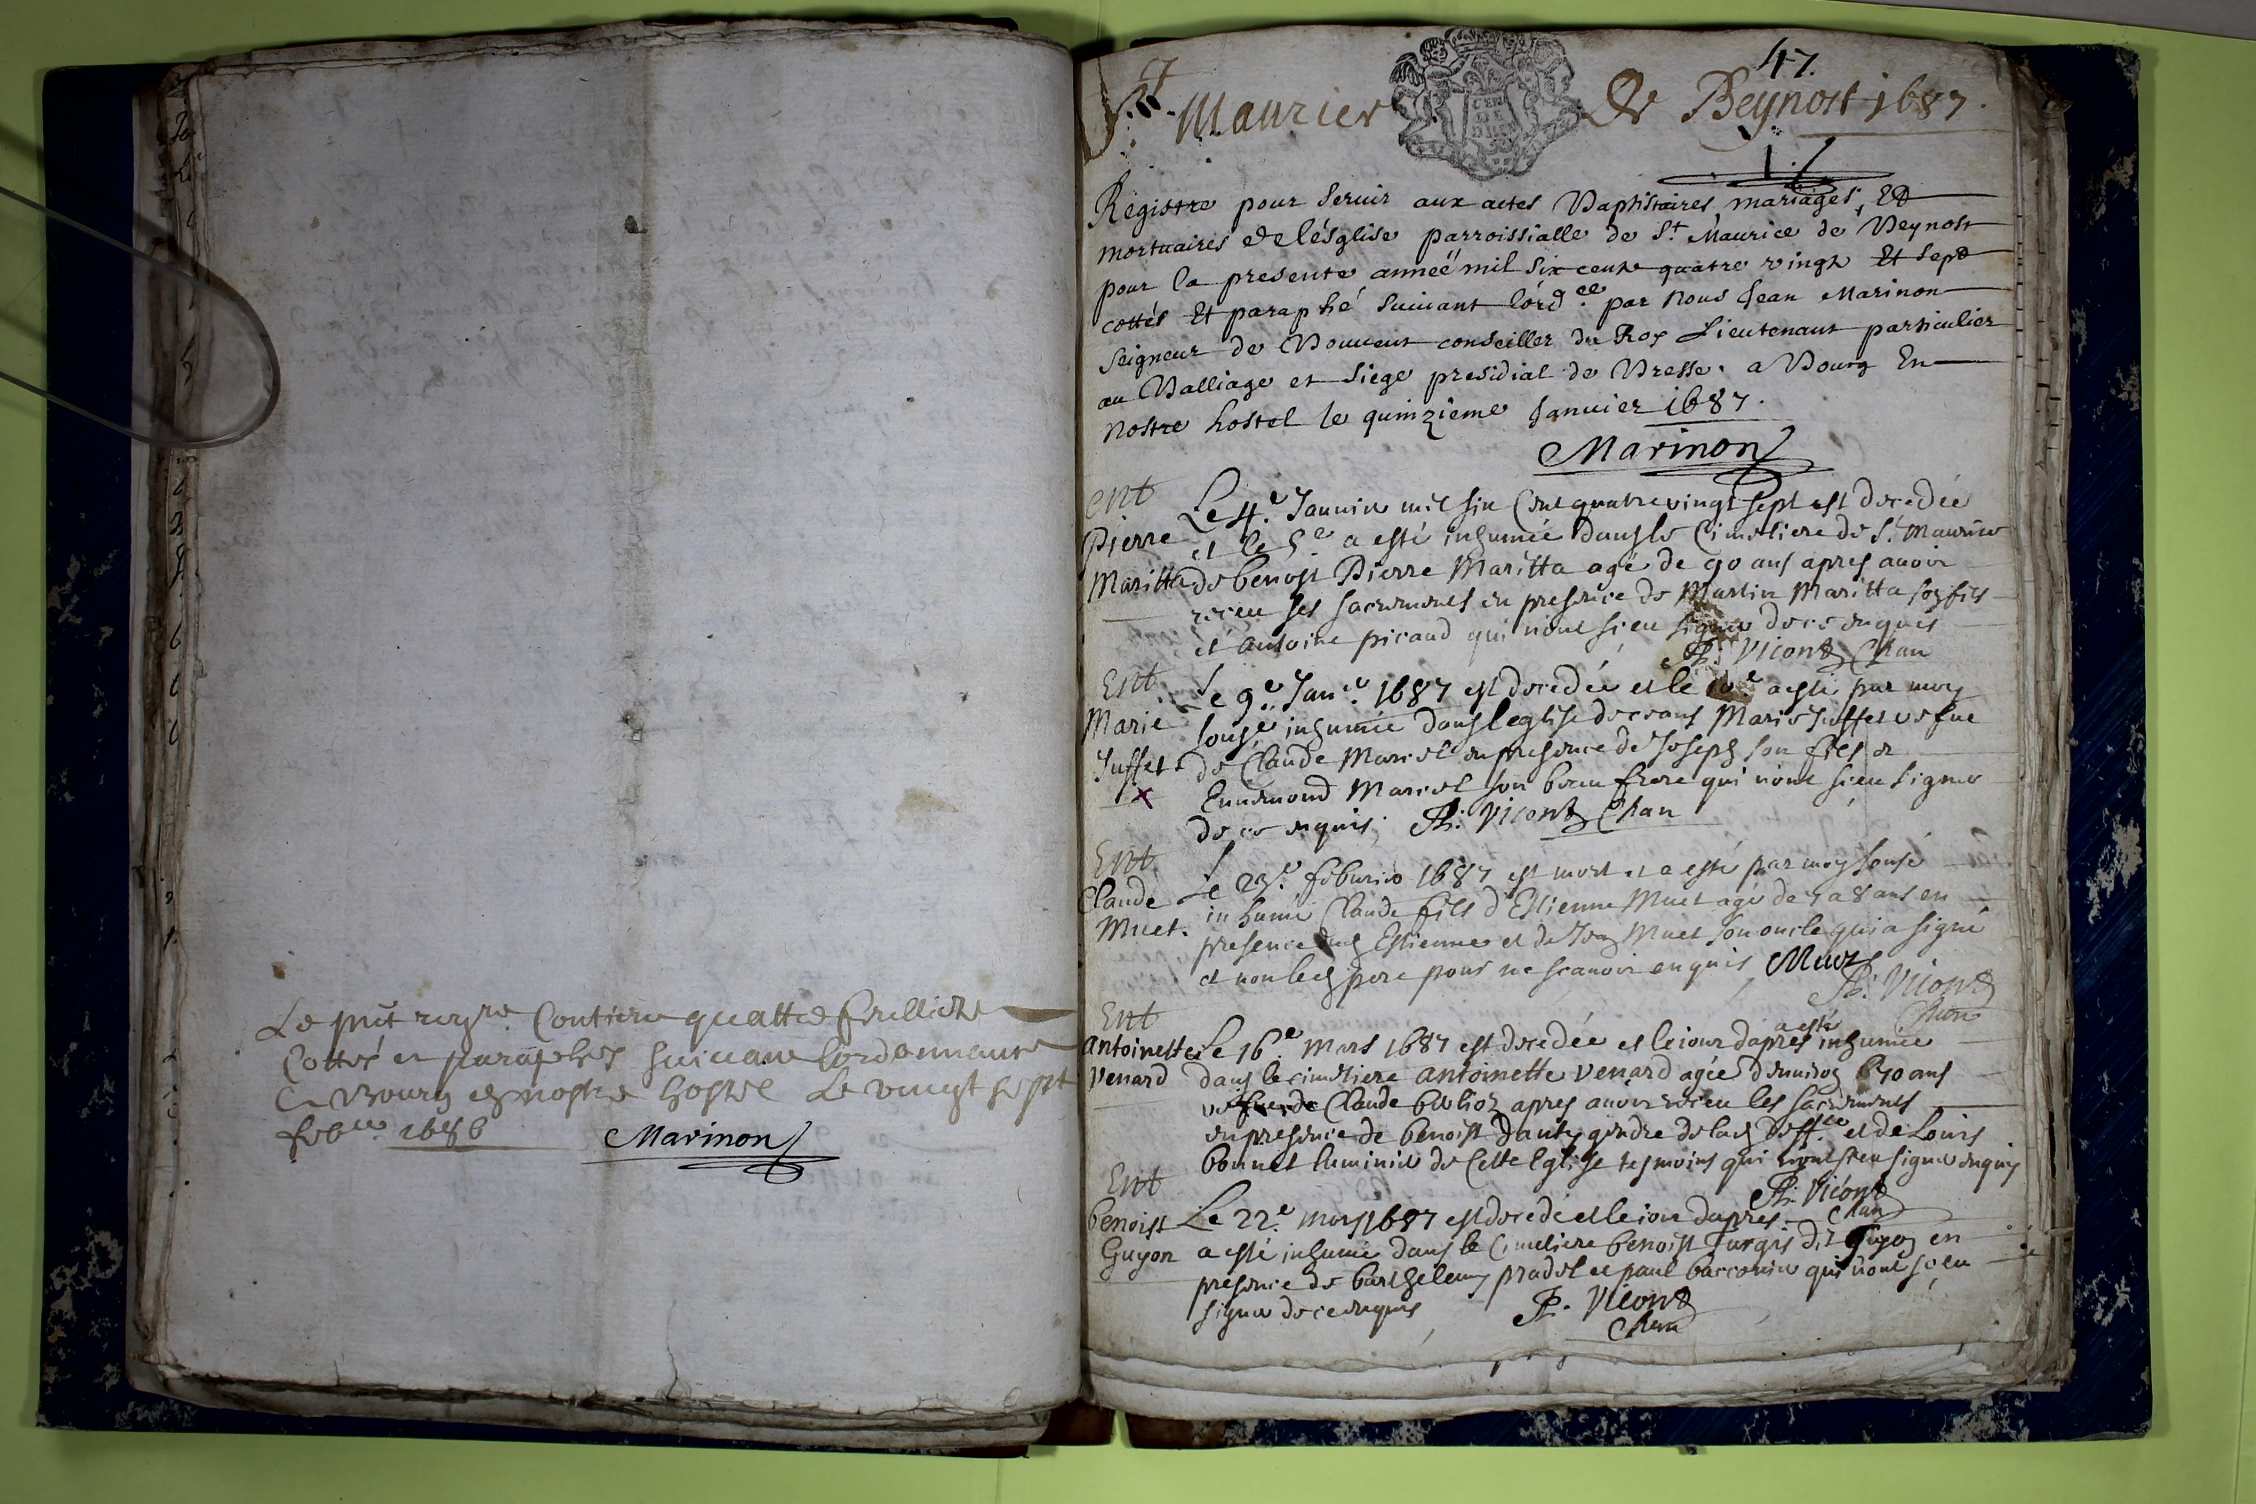 Le pnt regre Contient quattre feulliets
Cottés et paraphés suivant lordonnance
A Bourg en nostre hostel Le vingt sept
febver 1686
Marinon
47.
St. Maurice De Beynost 1687.
Registre pour servir aux actes Baptistaires, mariages, Et
mortuaires de l'ésglise parroissialle de St. Maurice de Beynost
pour la presente anneé mil six cents quatre vingt Et sept
cottés Et paraphé suivant l'ordce. par nous Jean Marinon
seigneur de conseiller du Roy Lieutenant particulier
au Balliage et siege presidial de Bresse. a Bourg En
nostre hostel le quinzieme Janvier 1687.
Marinon
ent
Pierre
Maritta
Le 4e. Janvier mil six Cent quatre vingt sept est decedée
et le 5e a esté inhumée dans le Cimetiere de St. Maurice
de benost Pierre Maritta agé de 90 ans apres avoir
receu ses sacrements en presence de Martin Maritta son fils
et Antoine picaud qui n'ont sceu signer de ce enquis
Vicont Chan
Ent
Marie
Juffet
x
Le 9e. Janer. 1687 est decedée et le 10e. a esté par moy
sousé inhumée dans leglise de ceans Marie Juffet vefue
de Claude Marcel en presence de Joseph son fils et
Ennemond Marcel son beau frere qui n'ont sceu signer
de ce enquis; Vicont Chan
Ent
Claude
Muet.
Le 23e. feburier 1687 est mort et a esté par moy sousé
inhumé Claude fils d'Estienne Muet agé de 7 a 8 ans en
presence dud Estienne et de Jean Muet son oncle qui a signé
et non led pere pour ne scavoir enquis Muet
Vicont
Chan
Ent
antoinette
Venard
Le 16e. Mars 1687 est decedée et le iour dapres a esté inhumée
dans le cimetiere antoinette Venard agée d'environ ans
vefue de Claude apres avoir receu les sacrements
en presence de benoist gendre de lad deffte et de Louis
bonnet luminier de Cette Eglise tesmoins qui n'ont sceu signer enquis
Vicont
Chan
Ent
benoist
Guyon
Le 22e. mars 1687 est decedé et le iour dapres
a esté inhumé dans le Cimetiere benoist dit Guyon en
presence de barthelemy pradel et paul qui n'ont sceu
signer de ce enquis Vicont
Chan